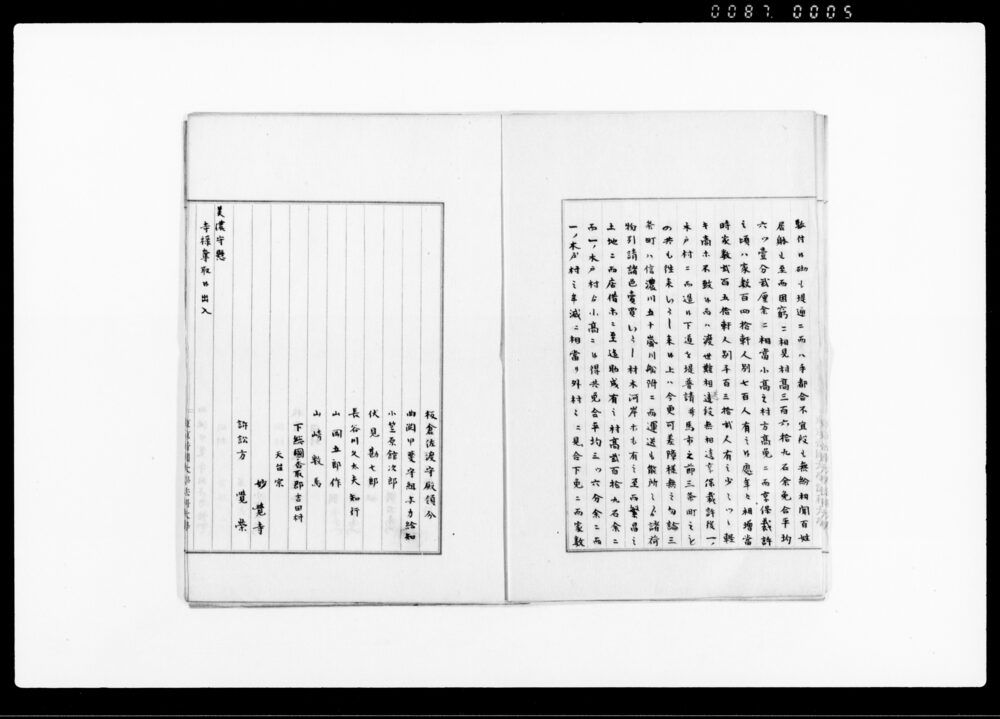 0087 0005
駄付候砌も堤通ニ而ハ手都合不宜段も無紛相聞百姓
居躰も至而困窮ニ相見村高三百六拾九石余免合平均
六ツ壹分貳厘余ニ相當小高之村方高免ニ而享保裁許
之頃ハ家数百四拾軒人別七百人有之候処年々相増當
時家数貳百五拾軒人別千百三拾貳人有之少しツヽ軽
キ高ホ不致候而ハ渡世難相適段無相違享保裁許後一ノ
木戸村ニ而造候下道を堤普請并馬市之節三条町之も
の共も往来いたし来候上ハ今更可差障様無之勿論三
条町ハ信濃川五十嵐川船附ニ而運送も弁利之諸荷
物引請諸色賣買いたし材木河岸ホも有之至而繁昌之
土地ニ而店借ホニ至迄助成有之村高貳百拾九石余ニ
而一ノ木戸村ゟ小高ニ候得共免合平均三ツ六分余ニ而
一ノ木戸村之半減ニ相當り外村ニ見合下免ニ而家数
板倉佐渡守殿領分
曲渕甲斐守組与力給知
小笠原舘次郎
伏見勘七郎
長谷川久太夫知行
山岡五郎作
山崎数馬
下総國香取郡吉田村
天台宗
妙覺寺
訴訟方 覺榮
美濃守懸
寺様奪取候出入